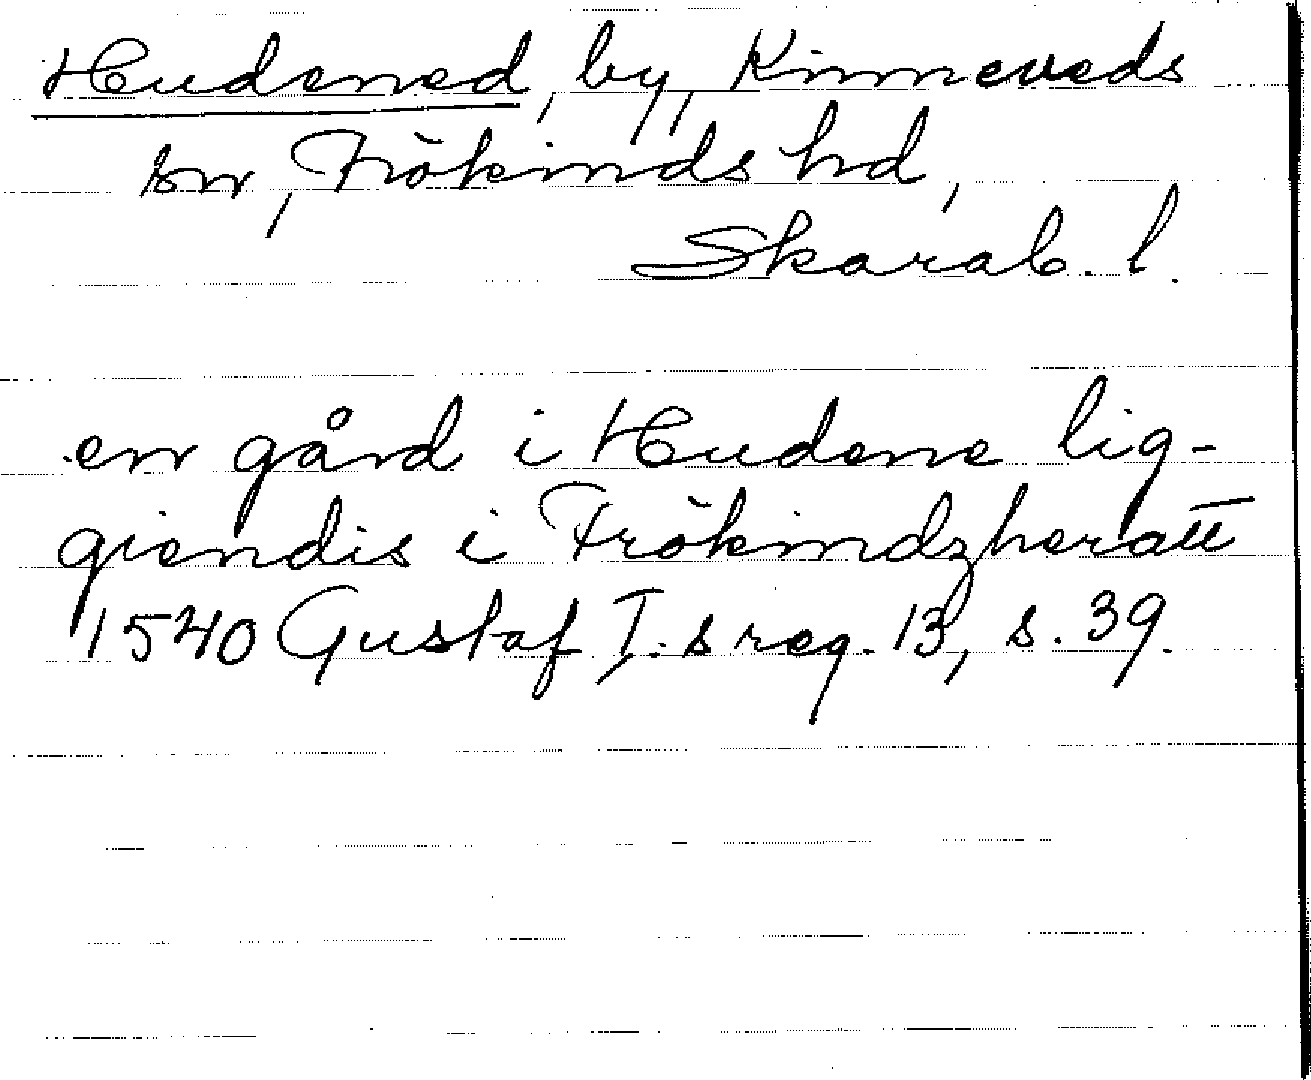 Hudened, by, Kinneveds
sn, Frökinds hd,
Skarab. l.
en gård i Hudene lig-
giendis i Frökindzheratt
1540 Gustaf I.s reg. 13, s. 39.